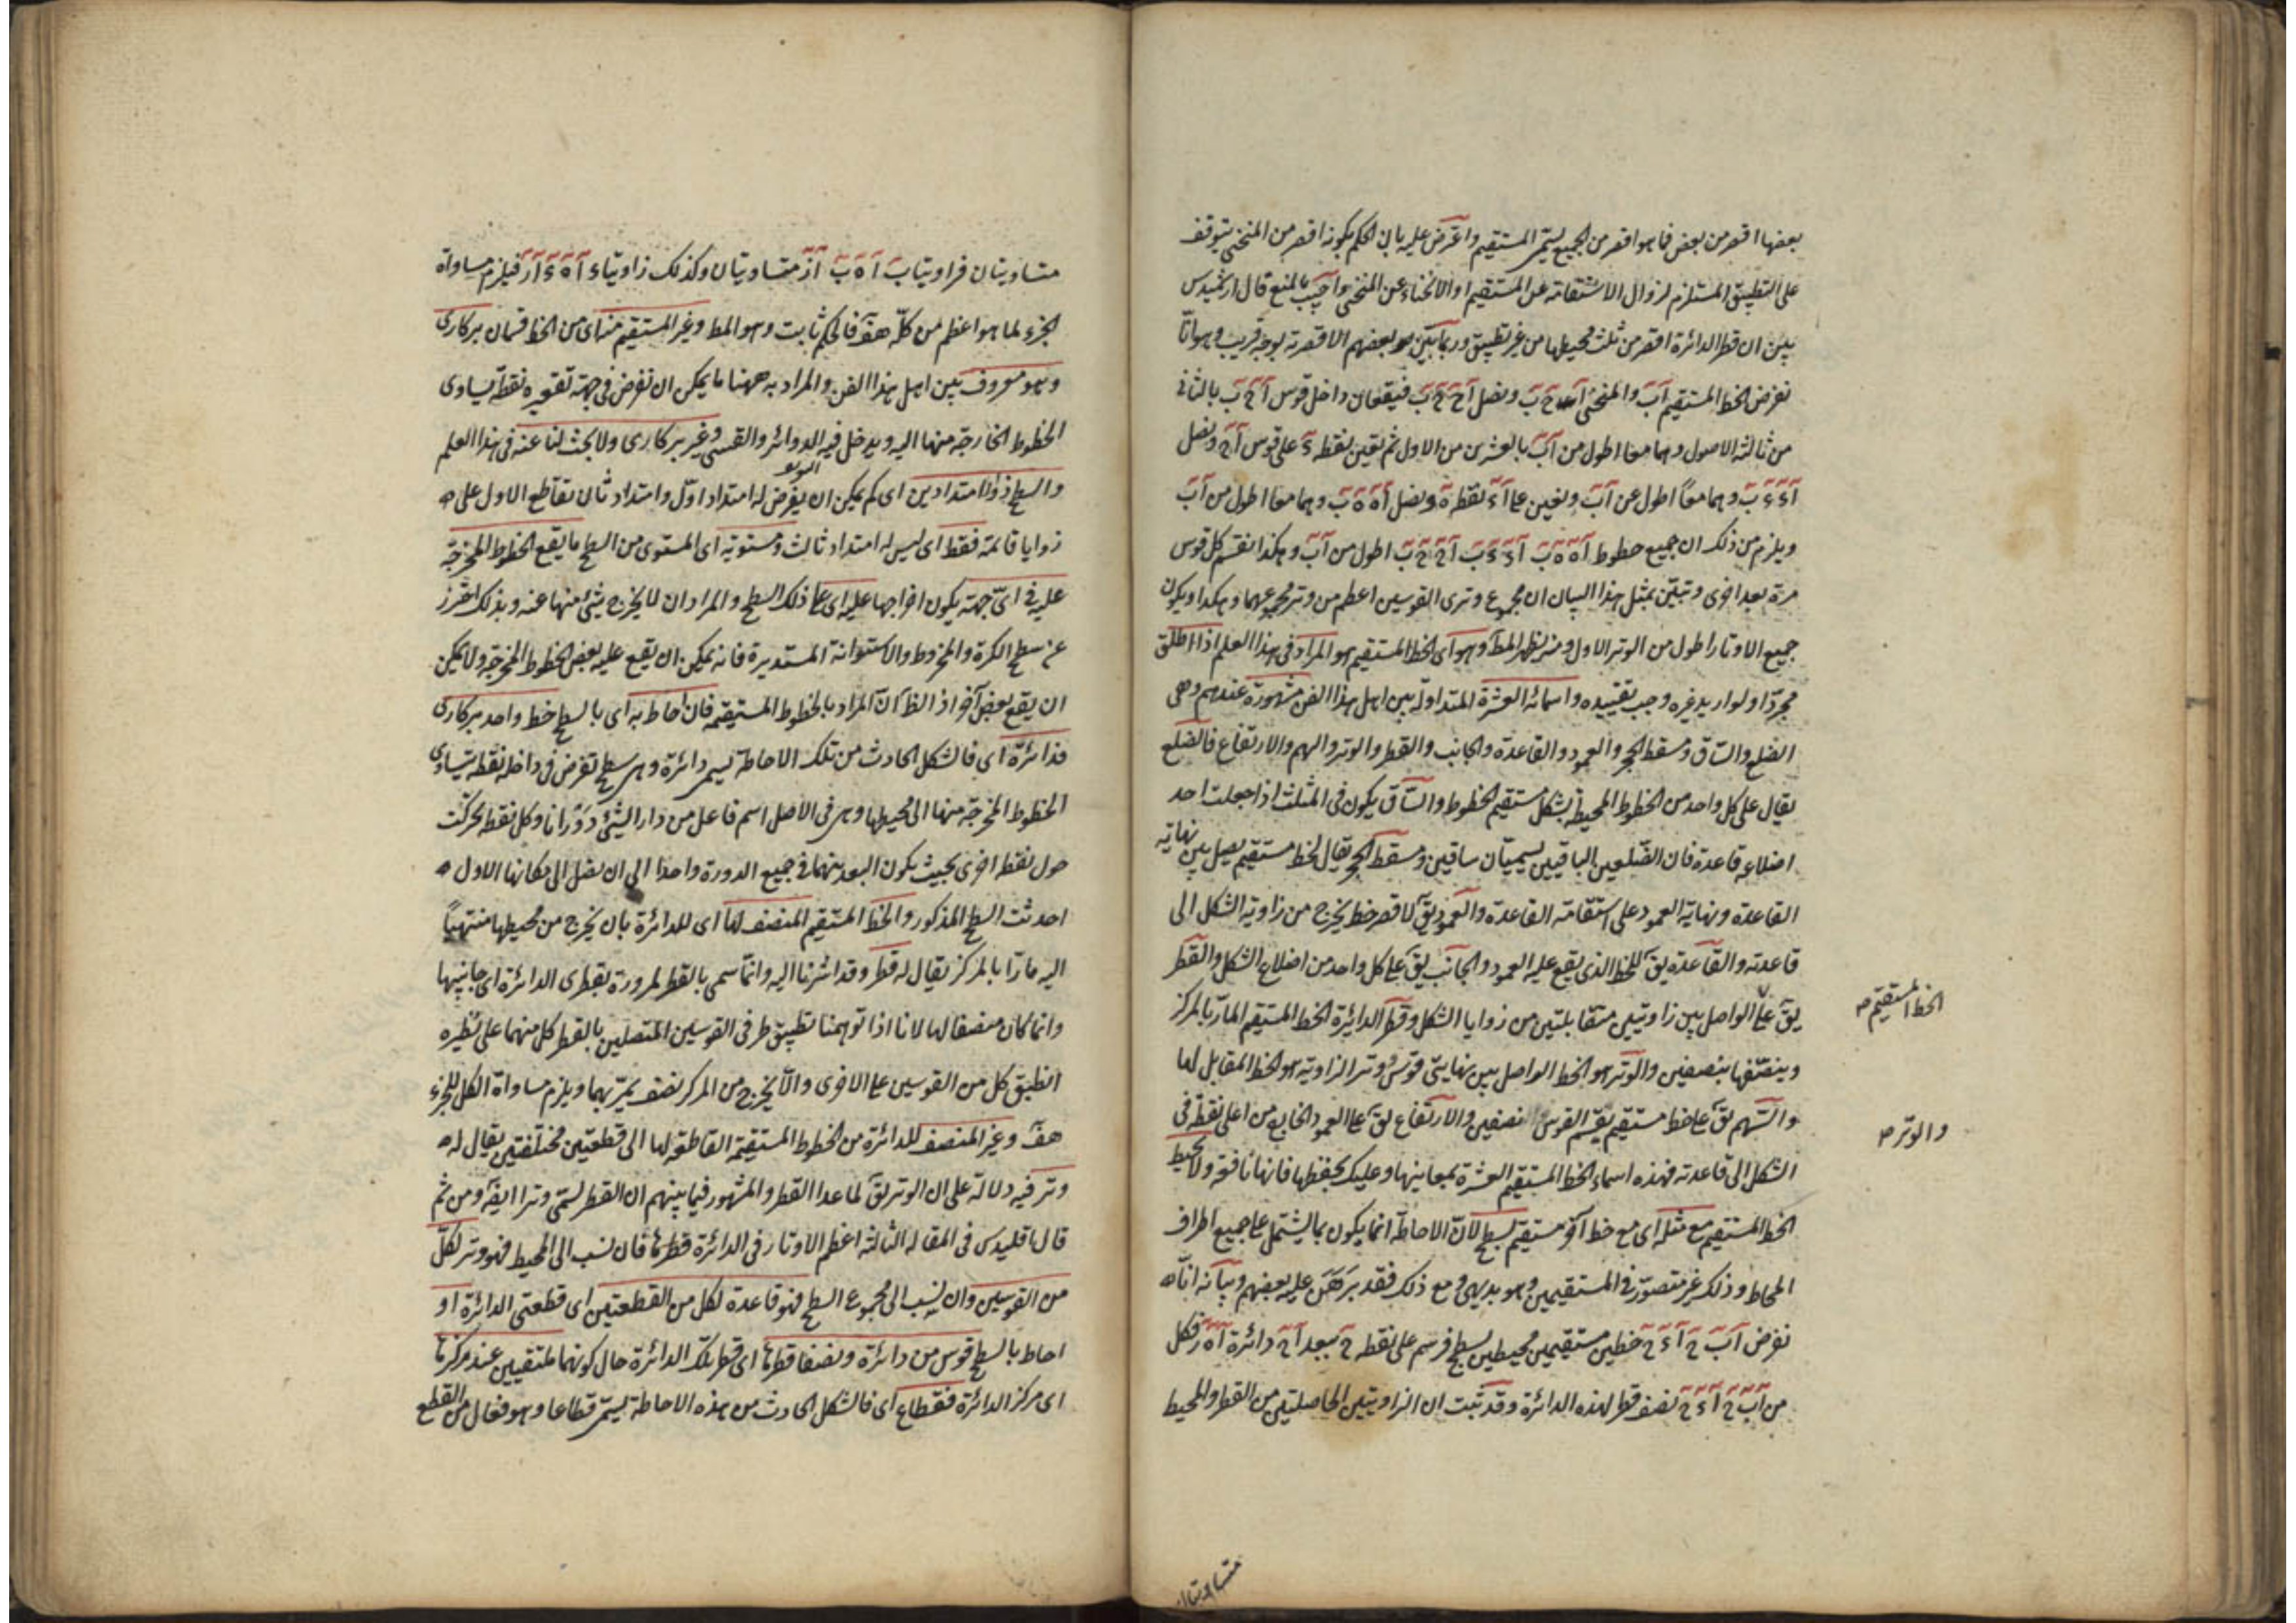 بعضها اقصر من بعض فما هو اقصر من الجميع يسمى المستقيم واعترض عليه بان الحكم بكونه اقصر من المنحنى يتوقف
على التطبيق المستلزم لزوال الاستقامة عن المستقيم او الانحناء عن المنحنى واجيب بالمنع قال ارشميدس
بين ان قطر الدائرة اقصر من ثلث محيطها من غير تطبيق وربما بين بعضهم الاقصرية بوجه قريب وهو انا
نفرض الخط المستقيم آب والمنحنى ونصل آح ح ب فيقعان داخل قوس آح ب بالثانى
من ثالثة الاصول وهما معا اطول من آب بالعشرين من الاول ثم نعين نقطة ء على قوس آح ونصل
آء ء ب وهما معاً اطول من آب ونعين على آء نقطة ه ونصل آه ه ب وهما معا اطول من آب
ويلزم من ذلك ان جميع خطوط آه ه ب آء ء ب آح ح ب اطول من آب وهكذا نقسم كل قوس
مرة بعد اخرى وتبين بمثل هذا البيان ان مجموع وترى القوسين اعظم من وتر مجموعهما وهكذا ويكون
جميع الاوتار اطول من الوتر الاول ومنه يظهر المط وهو اى الخط المستقيم هو المراد فى هذا العلم اذا اطلق
مجردا ولو اريد غيره وجب تقييده واسمائه العشرة المتداولة بين اهل هذا الفن مشهورة عندهم وهى
الضلع والساق ومسقط الحجر والعمود والقاعدة والجانب والقطر والوتر والسهم والارتفاع فالضلع
يقال على كل واحد من الخطوط المحيطة بشكل مستقيم الخطوط والساق يكون فى المثلث اذا جعلت احد
اضلاعه قاعدة فان الضلعين الباقيين يسميان ساقين ومسقط الحجر يقال لخط مستقيم يصل بين نهاية
القاعدة ونهاية العمود على استقامة القاعدة والعمود يق لاقصر خط يخرج من زاوية الشكل الى
قاعدته والقاعدة يق للخط الذى يقع عليه العمود والجانب يق على كل واحد من اضلاع الشكل والقطر
يق على الواصل بين زاويتين متقابلتين من زوايا الشكل وقطر الدايرة الخط المستقيم المار بالمركز
الخط المستقيم صح
وينصفها بنصفين والوتر هو الخط الواصل بين نهايتى قوس وتر الزاوية هو الخط المقابل لها
والسهم يق على خط مستقيم يقسم القوس بنصفين والارتفاع يق على العمود الخارج من اعلى نقطة فى
والوتر صح
الشكل الى قاعدته فهذه اسماء الخط المستقيم العشرة بمعاينها وعليك بحفظها فانها نافعة ولا يحيط
الخط المستقيم مع مثله اى مع خط آخر مستقيم بسطح لان الاحاطة انما يكون بما يشتمل على جميع اطراف
المحاط وذلك غير متصور فى المستقيمين وهو بديهى ومع ذلك فقد برهن عليه بعضهم وبيانه انا
نفرض آب ح آء ح خطين مستقيمين محيطين بسطح فرسم على نقطة ح ببعد آح دائرة آه ر فكل
من آب ح آء ح نصف قطر لهذه الدائرة وقد ثبت ان الزاويتين الحاصلتين من القطر والمحيط
متساويتان
متساويتان فزاويتا ب آه ب آز متساويتان وكذلك زاويتا ء آه ء آر فيلزم مساواة
الجزء لما هو اعظم من كله هف فالحكم ثابت وهو المط وغير المستقيم منه اى من الخط قسمان بركارى
وهو معروف بين اهل هذا الفن والمراد به ههنا ما يمكن ان نفرض فى جهة تقعيره نقطة يساوى
الخطوط الخارجة منها اليه ويدخل فيه الدوائر والقسى وغير بركارى ولا بحث لنا عنه فى هذا العلم
والسطح ذو امتدادين اى كم يمكن ان يفرض له امتداد اول وامتداد ثان يقاطع الاول على
زوايا قائمة فقط اى ليس له امتداد ثالث ومستويه اى المستوى من السطح ما يقع الخطوط المخرجة
عليه فى اى جهة يكون اخراجها عليه اى على ذلك السطح والمراد ان لا يخرج شئ منها عنه وبذلك احترز
عن سطح الكرة والمخروط والاستوانة المستديرة فانه يمكن ان يقع عليه بعض الخطوط المخرجة ولا يمكن
ان يقع بعض آخر اذ الظ ان المراد بالخطوط المستقيمة فان احاط به اى بالسطح خط واحد بركارى
فدائرة اى فالشكل الحادث من تلك الاحاطة يسمى دائرة وهى سطح نفرض فى داخله نقطة يتساوى
الخطوط المخرجة منها الى محيطها وهى فى الاصل اسم فاعل من دار الشئ دورانا وكل نقطة تحركت
حول نقطة اخرى بحيث يكون البعد بينهما فى جميع الدورة واحدا الى ان يصل الى مكانها الاول
احدثت السطح المذكور والخط المستقيم المنصف لها اى للدائرة بان يخرج من محيطها منتهياً
اليه مارا بالمركز يقال له قطر وقد اشرنا اليه وانما سمى بالقطر لمروره بقطرى الدائرة اى جانبيها
وانما كان منصفا لها لانا اذا توهمنا تطبيق طرفى القوسين المتصلين بالقطر كل منهما على نظيره
انطبق كل من القوسين على الاخرى والا يخرج من المركز نصف يمر بهما ويلزم مساواة الكل للجزء
هف وغير المنصف للدائرة من الخطوط المستقيمة القاطعة لها الى قطعتين مختلفتين يقال له
وتر فيه دلالة على ان الوتر يق لما عدا القطر والمشهور فيما بينهم ان القطر يسمى وترا ايضا ومن ثم
قال اقليدس فى المقالة الثالثة اعظم الاوتار فى الدائرة قطرها فان نسب الى المحيط فهو وتر لكل
من القوسين وان نسب الى مجموع السطح فهو قاعدة لكل من القطعتين اى قطعتى الدائرة او
احاط بالسطح قوس من دائرة ونصفا قطرها اى قطر تلك الدائرة حال كونهما ملتقيين عند مركزها
اى مركز الدائرة فقطاع اى فالشكل الحادث من هذه الاحاطة يسمى قطاعا وهو فعال من القطع